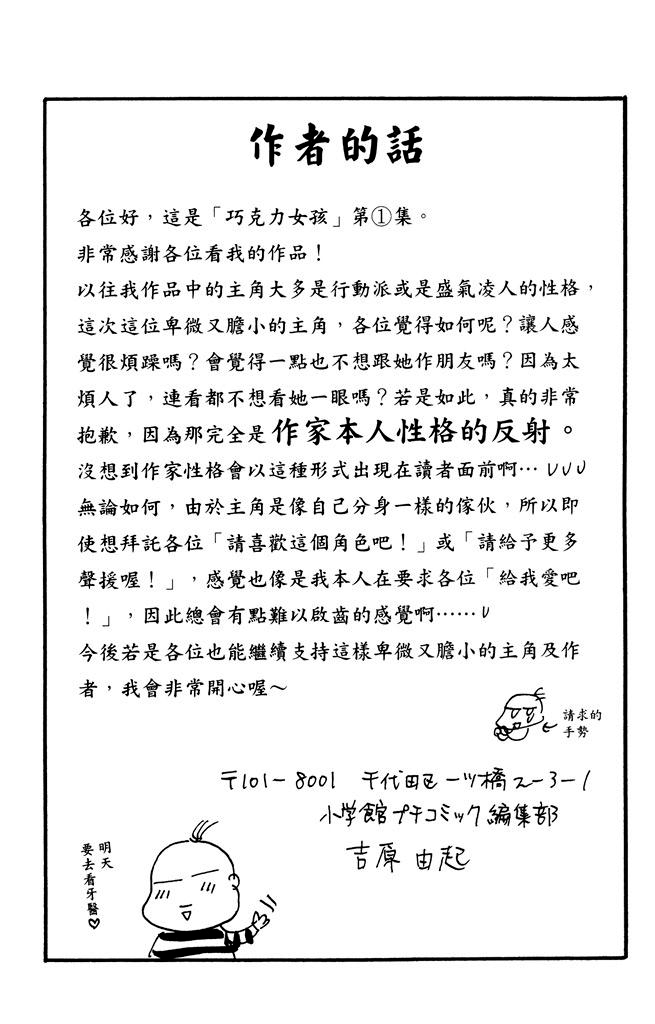 作者的話
各位好，這是「巧克力女孩」第①集。
非常感謝各位看我的作品！
以往我作品中的主角大多是行動派或是盛氣凌人的性格，
這次這位卑微又膽小的主角，各位覺得如何呢？讓人感
覺很煩躁嗎？會覺得一點也不想跟她作朋友嗎？因為太
煩人了，連看都不想看她一眼嗎？若是如此，真的非常
抱歉，因為那完全是作家本人性格的反射。
沒想到作家性格會以這種形式出現在讀者面前啊…
無論如何，由於主角是像自己分身一樣的傢伙，所以即
使想拜託各位「請喜歡這個角色吧！」或「請給予更多
聲援喔！」，感覺也像是我本人在要求各位「給我愛吧
！」，因此總會有點難以啟齒的感覺啊……
今後若是各位也能繼續支持這樣卑微又膽小的主角及作
者，我會非常開心喔～
請求的
手勢
〒101-8001 千代田区一ツ橋2-3-1
小学館プチコミック編集部
吉原由起
明天
要去看牙醫♡